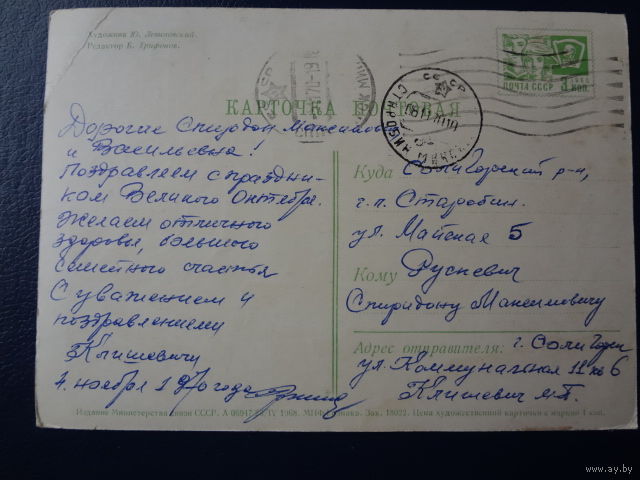 Художник Ю. Левиновский.
Редактор Б. Трифонов.
КАРТОЧКА ПОЧТОВАЯ
ПОЧТА СССР
Дорогие Спиридон Максимов
и Васильевна!
Поздравляем с праздни-
ком Великого Октября.
Желаем отличного
здоровья, большого
семейного счастья
С уважением и
поздравлением
Климиевичи
4. ноября 1970 года
Куда Солигорский р-н,
г.п. Старобин.
ул. Майская 5
Кому Рускевич
Спиридону Максимовичу
Адрес отправителя: г. Солигорск
ул. Коммунальная 11 кв 6
Издание Министерства связи СССР. 1968. Зак. 18022. Цена художественной карточки с маркой 4 коп.
www.ay.by